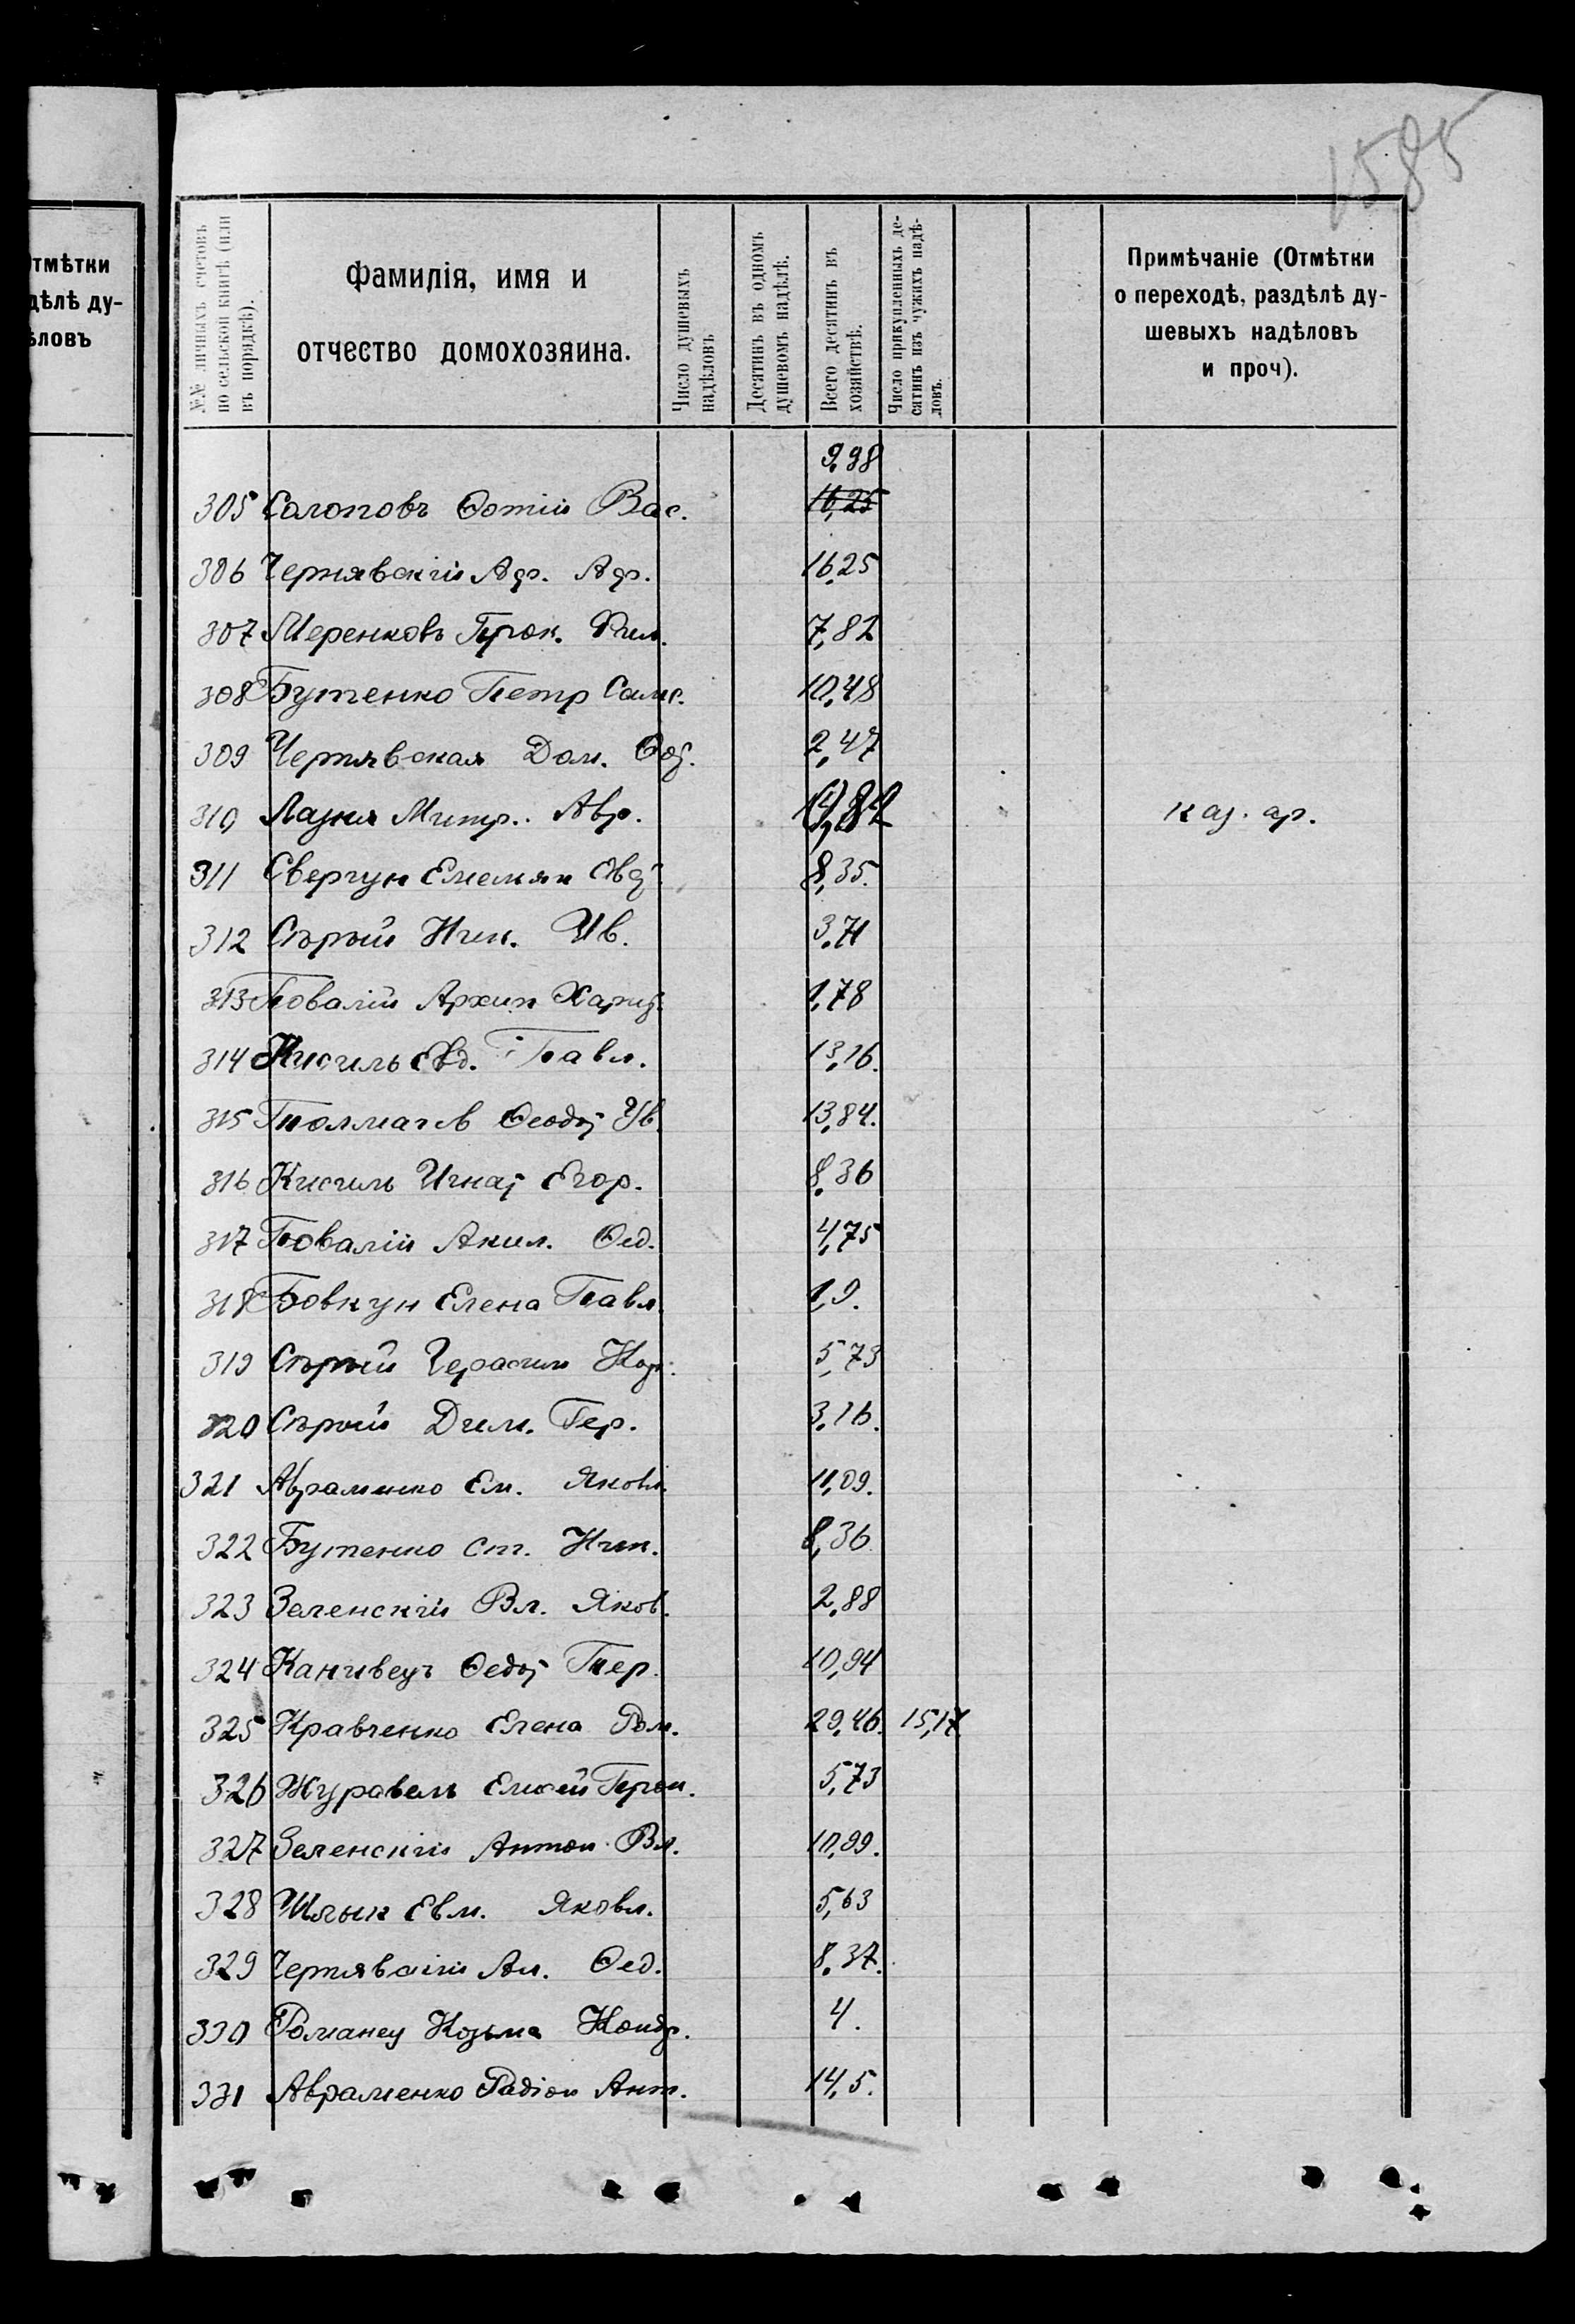 1585
тмѣтки
дѣлѣ ду-
ѣловъ
№№ личныхъ счетовъ
по сельской книгѣ (или
въ порядкѣ).
Фамилія, имя и
отчество домохозяина.
Число душевыхъ
надѣловъ
Десятинъ въ одномъ
душевомъ надѣлѣ.
Всего десятинъ въ
хозяйствѣ.
Число прикупленныхъ де-
сятинъ изъ чужихъ надѣ-
ловъ.
Примѣчаніе (Отмѣтки
о переходѣ, раздѣлѣ ду-
шевыхъ надѣловъ
и проч).
9,98
305 Салоповъ Ѳотій Вас. 16,25
306 Чернявскій 16,25
307 Меренковъ Прок. Фил. 7,82
308 Бутченко Петр Самс. 10,48
309 Чернявская Дом. 2,47
310 Лазня Митр. Авр. каз. ар.
311 Свергун Емельян Овд. 8,35.
312 Сѣрый Ник. Ив. 3,71
313 Повалій Архип Харит. 1,78
314 Кисиль Евд. Павл. 13,16.
315 Толмачев Ѳеодос. Ив. 13,84.
316 Кисиль Игнат Егор. 8,36
317 Повалій Акил. Ѳед. 4,75
318 Бовкун Елена Павл. 1,9.
319 Сѣрый Герасим 5,73
320 Сѣрый Дим. Гер. 3,16.
321 Авраменко Ем. Яковл. 11,09.
322 Бутенко Ст. Ник. 8,36
323 Зеленскій Вл. Яков. 2,88
324 Канивецъ Ѳедос. 10,94
325 Кравченко Елена Ром. 29,46. 15,17
326 Журавель Елисей 5,73
327 Зеленскій Антон Вл. 10,99.
328 Шлык Евм. Яковл. 5,63
329 Чернявскій Ал. Ѳед. 8,37.
330 Романец Козьма Кондр. 4.
331 Авраменко Радіон Ант. 14,5.